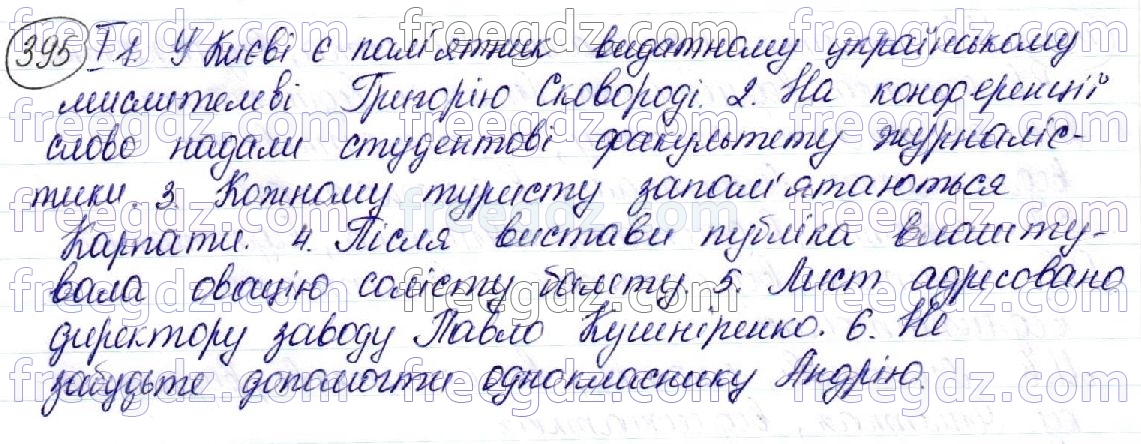 395 I 1. У Києві є пам'ятник видатному українському
мислителеві Григорію Сковороді. 2. На конференції
слово надали студентові факультету журналіс-
тики. 3. Кожному туристу запам'ятаються
Карпати. 4. Після вистави публіка влашту-
вала овацію солісту балету. 5. Лист адресовано
директору заводу Павло Кушніренко. 6. Не
забудьте допомогти однокласнику Андрію.